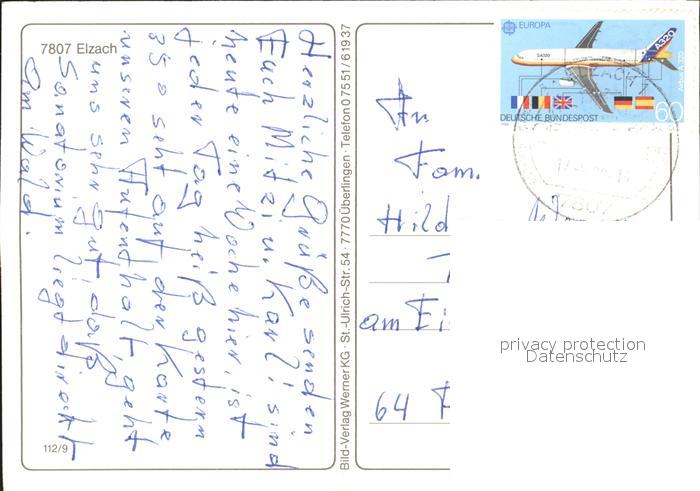 7807 Elzach
Herzliche Grüße senden
Euch Mitzi u. Karl! sind
heute eine Woche hier, ist
jeder Tag heiß gestern
35° seht auf der Karte
unseren Aufenthalt, geht
uns sehr gut, daß
Sanatorium liegt direkt
am Wald.
112/9
Bild-Verlag Werner KG · St.-Ulrich-Str. 54 · 7770 Überlingen · Telefon 07551/61937
EUROPA
A320
Airbus A 320
DEUTSCHE BUNDESPOST
60
7807
An
Fam.
Hild
am Ei
64
privacy protection
Datenschutz